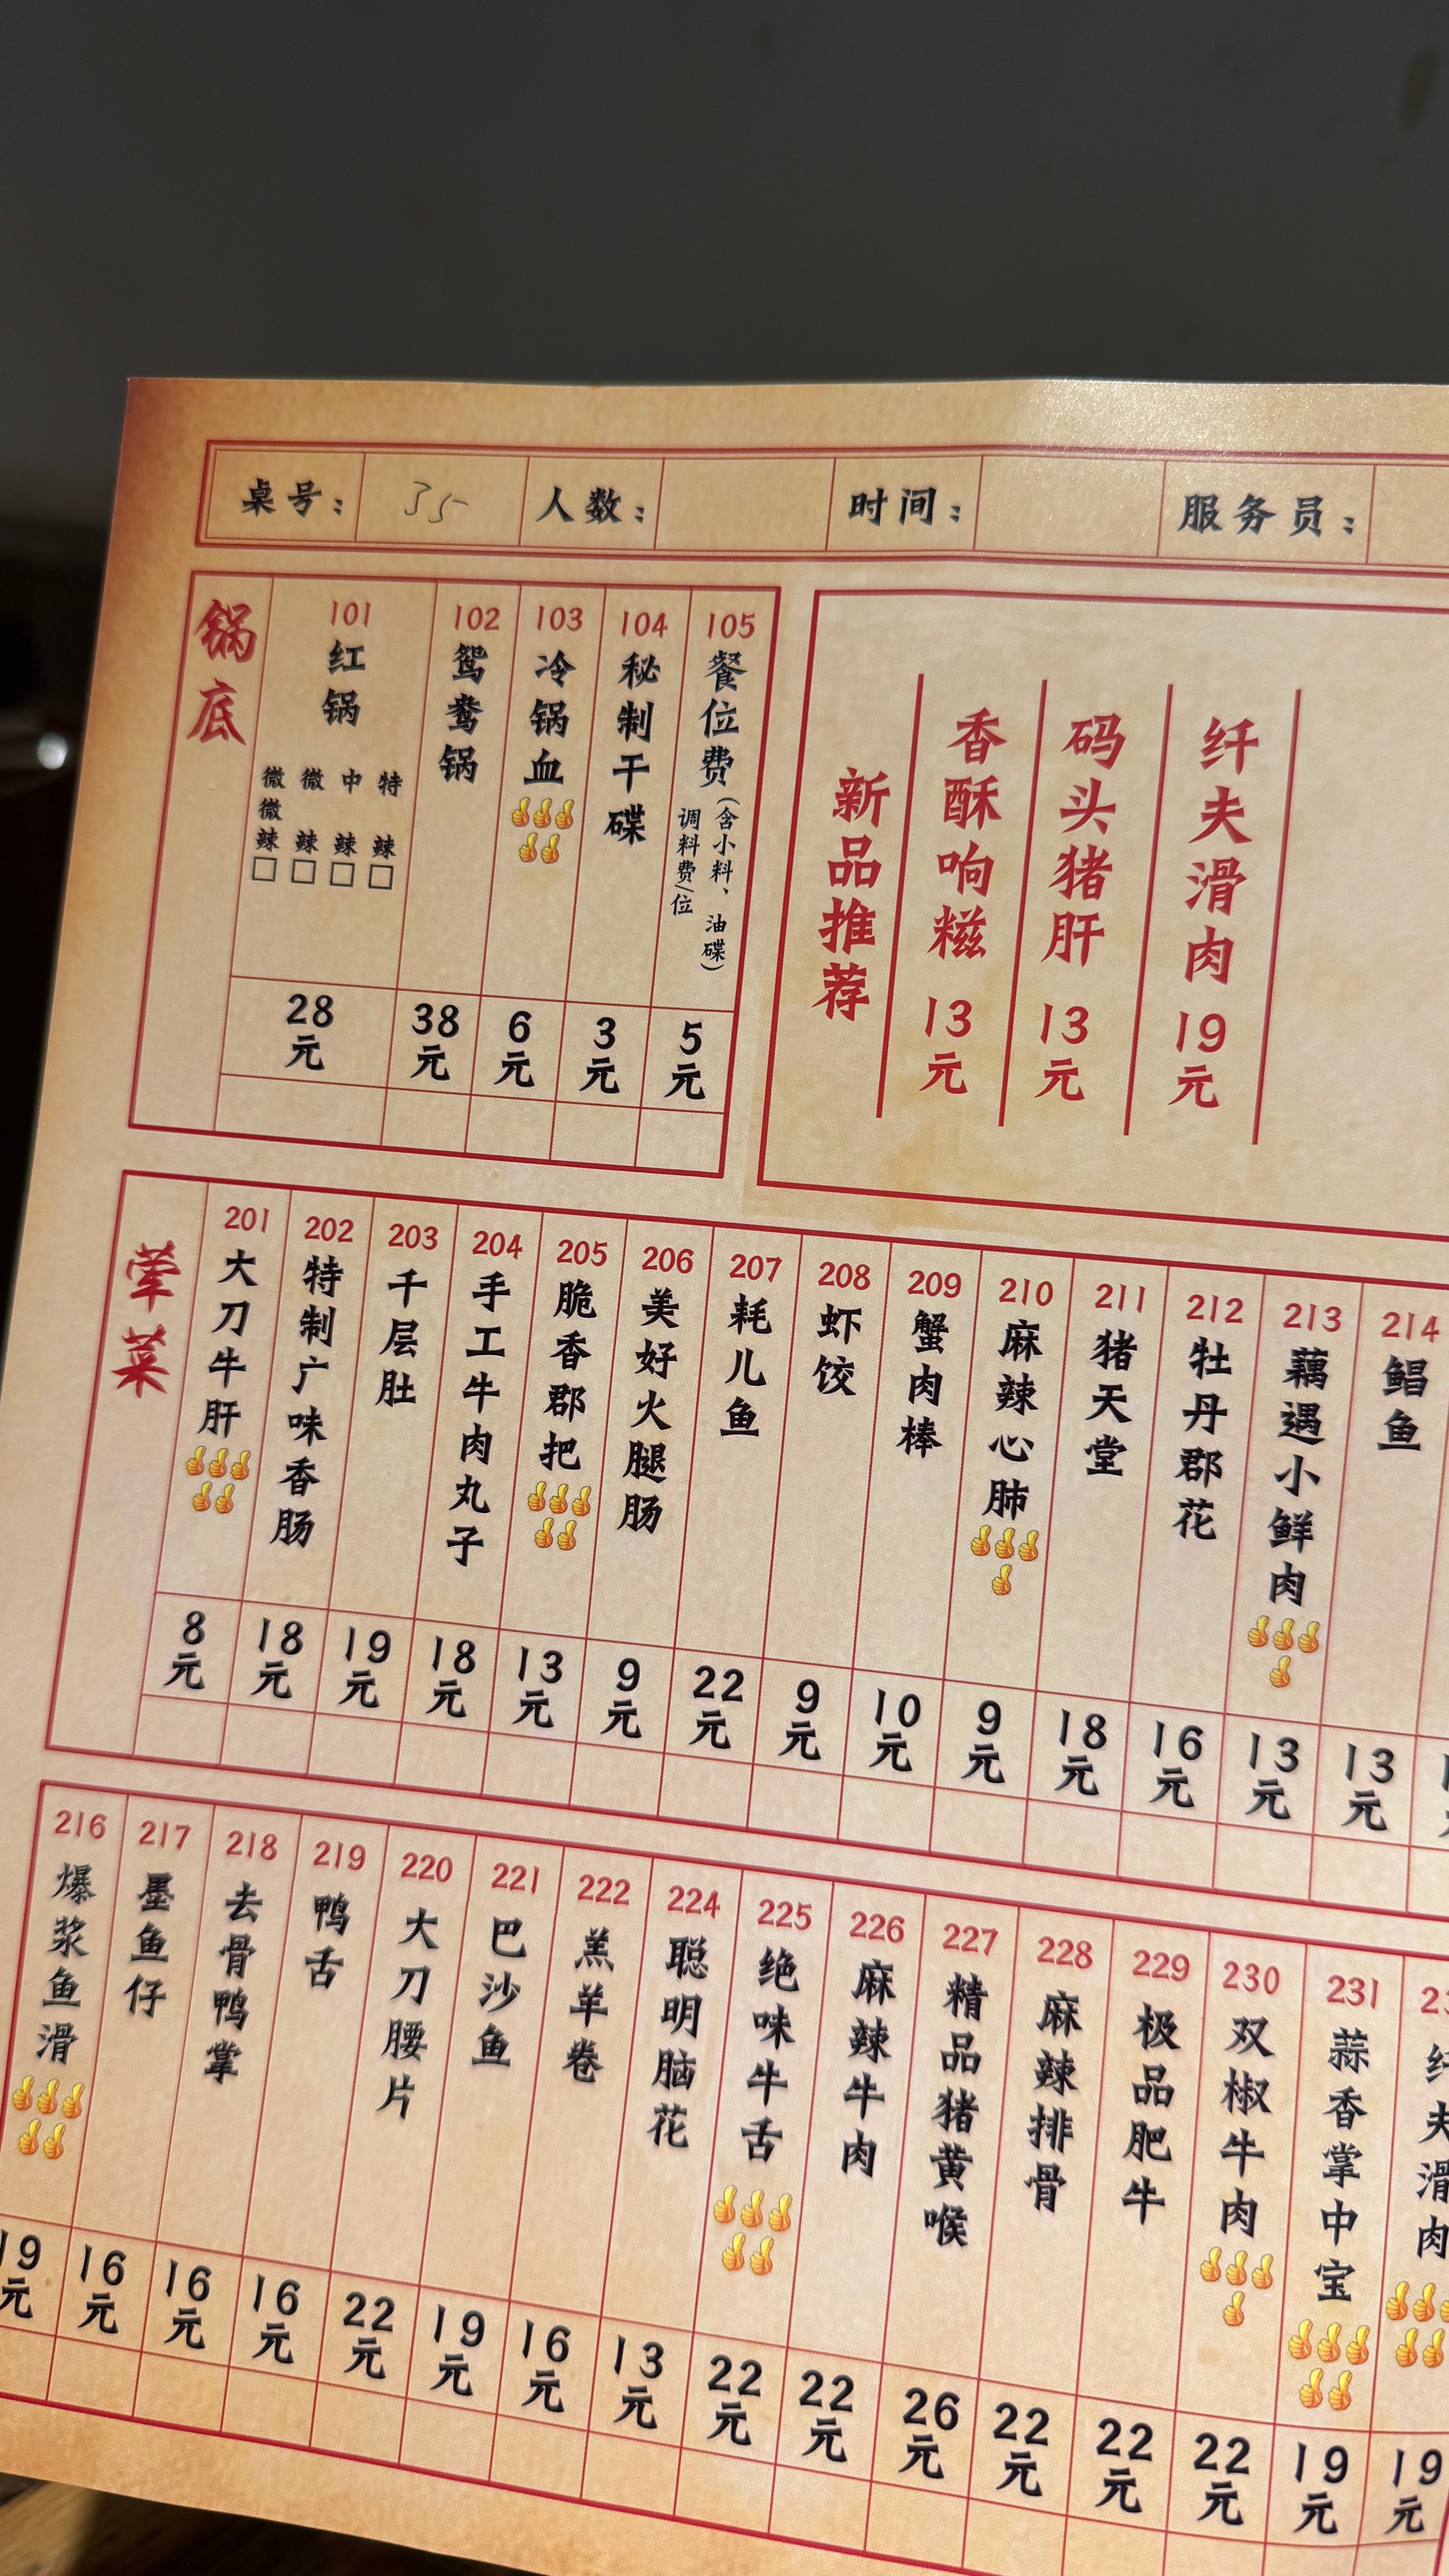 桌号： 35 人数： 时间： 服务员：
锅底
101 红锅 微微辣□ 微辣□ 中辣□ 特辣□ 28元
102 鸳鸯锅 38元
103 冷锅血 6元
104 秘制干碟 3元
105 餐位费(含小料、油碟) 调料费/位 5元
新品推荐
香酥响糍 13元
码头猪肝 13元
纤夫滑肉 19元
荤菜
201 大刀牛肝 8元
202 特制广味香肠 18元
203 千层肚 19元
204 手工牛肉丸子 18元
205 脆香郡把 13元
206 美好火腿肠 9元
207 耗儿鱼 22元
208 虾饺 9元
209 蟹肉棒 10元
210 麻辣心肺 9元
211 猪天堂 18元
212 牡丹郡花 16元
213 藕遇小鲜肉 13元
214 鲳鱼 13元
216 爆浆鱼滑 19元
217 墨鱼仔 16元
218 去骨鸭掌 16元
219 鸭舌 16元
220 大刀腰片 22元
221 巴沙鱼 19元
222 羔羊卷 16元
224 聪明脑花 13元
225 绝味牛舌 22元
226 麻辣牛肉 22元
227 精品猪黄喉 26元
228 麻辣排骨 22元
229 极品肥牛 22元
230 双椒牛肉 22元
231 蒜香掌中宝 19元
纤夫滑肉 19元